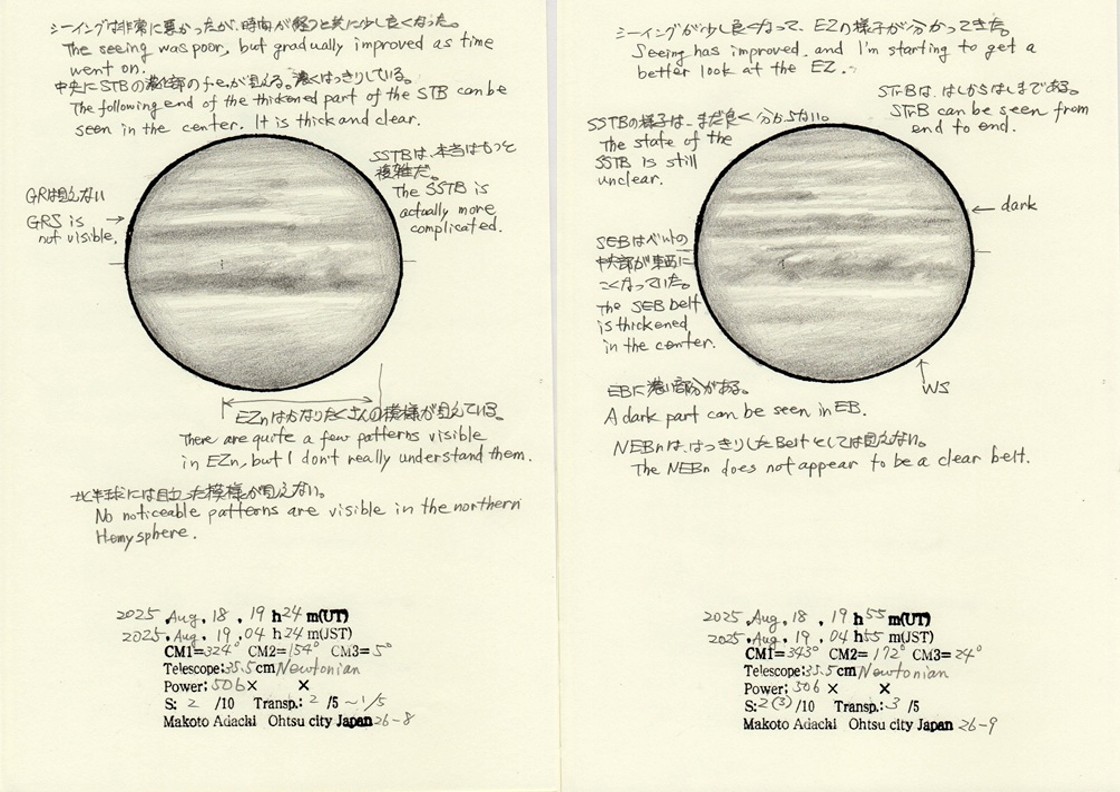 シーイングは非常に悪かったが、時間が経つと共に少し良くなった。
The seeing was poor, but gradually improved as time
went on.
中央にSTBの濃化部のf.e.が見える。濃くはっきりしている。
The following end of the thickened part of the STB can be
seen in the center. It is thick and clear.
SSTBは、本当はもっと
複雑だ。
The SSTB is
actually more
complicated.
GRは見えない
GRS is →
not visible,
EZnはかなりたくさんの模様が見えている。
There are quite a few patterns visible
in EZn, but I don't really understand them.
北半球には目立った模様が見えない。
No noticeable patterns are visible in the northern
Hemysphere.
2025, Aug, 18, 19 h 24 m(UT)
2025, Aug, 19, 04 h 24 m(JST)
CM1=324° CM2=154° CM3=5°
Telescope:35.5cm Newtonian
Power: 506× ×
S: 2 /10 Transp.: 2 /5 ~1/5
Makoto Adachi Ohtsu city Japan 26-8
シーイングが少し良くなって、EZnの様子が分かってきた。
Seeing has improved, and I'm starting to get a
better look at the EZ.
STrBは、はしからはしまである。
STrB can be seen from
end to end.
SSTBの様子は、まだ良く分からない。
The state of the
SSTB is still
unclear.
← dark
SEBはベルトの
中央部が東西に
こくなっていた。
The SEB belt
is thickened
in the center.
WS
EBに濃い部分がある。
A dark part can be seen in EB.
NEBnは、はっきりしたBeltとしては見えない。
The NEBn does not appear to be a clear belt.
2025, Aug, 18, 19 h 55 m(UT)
2025, Aug, 19, 04 h 55 m(JST)
CM1=343° CM2=172° CM3=24°
Telescope:35.5cm Newtonian
Power: 506 × ×
S: 2(3) /10 Transp.: 3 /5
Makoto Adachi Ohtsu city Japan 26-9